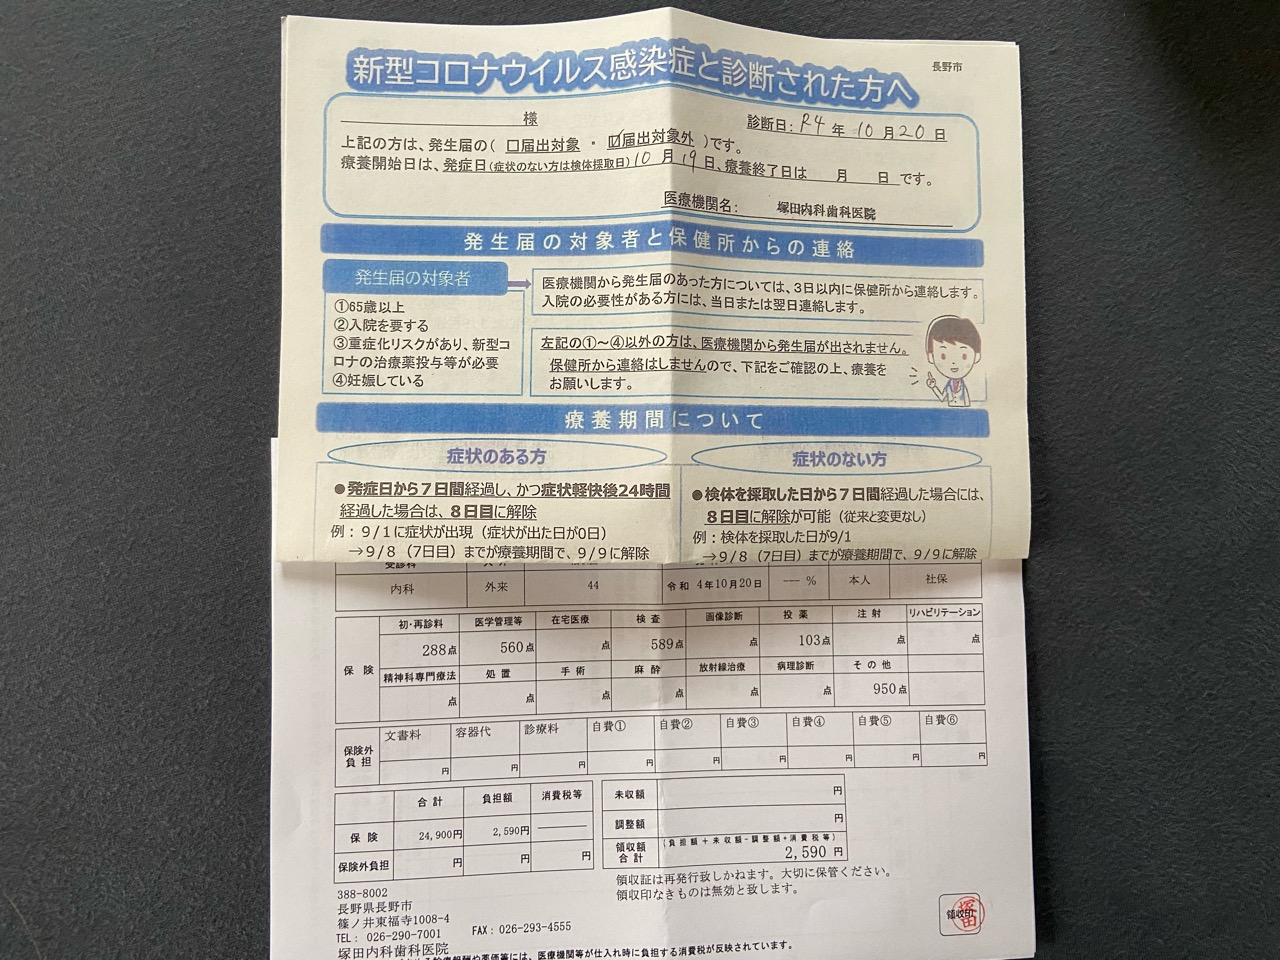 新型コロナウイルス感染症と診断された方へ
長野市
様
診断日: R4 年 10 月 20 日
上記の方は、発生届の( □届出対象 ・ ☑届出対象外 )です。
療養開始日は、発症日(症状のない方は検体採取日) 10 月 19 日、療養終了日は 月 日 です。
医療機関名: 塚田内科歯科医院
発生届の対象者と保健所からの連絡
発生届の対象者
①65歳以上
②入院を要する
③重症化リスクがあり、新型コ
ロナの治療薬投与等が必要
④妊娠している
医療機関から発生届のあった方については、3日以内に保健所から連絡します。
入院の必要性がある方には、当日または翌日連絡します。
左記の①～④以外の方は、医療機関から発生届が出されません。
保健所から連絡はしませんので、下記をご確認の上、療養を
お願いします。
療養期間について
症状のある方
●発症日から7日間経過し、かつ症状軽快後24時間
経過した場合は、8日目に解除
例：9/1に症状が出現（症状が出た日が0日）
→9/8（7日目）までが療養期間で、9/9に解除
症状のない方
●検体を採取した日から7日間経過した場合には、
8日目に解除が可能（従来と変更なし）
例：検体を採取した日が9/1
→9/8（7日目）までが療養期間で、9/9に解除
受診科
内科 外来 44 令和 4年10月20日 --- % 本人 社保
保険
初・再診料 医学管理等 在宅医療 検査 画像診断 投薬 注射 リハビリテーション
288点 560点 点 589点 点 103点 点 点
精神科専門療法 処置 手術 麻酔 放射線治療 病理診断 その他
点 点 点 点 点 点 950点
保険外
負担
文書料 容器代 診療料 自費① 自費② 自費③ 自費④ 自費⑤ 自費⑥
円 円 円 円 円 円 円 円 円
合計 負担額 消費税等
保険 24,900円 2,590円
保険外負担 円 円 円
未収額 円
調整額 円
領収額
合計
(負担額+未収額-調整額+消費税等)
2,590 円
領収証は再発行致しかねます。大切に保管ください。
領収印なきものは無効と致します。
388-8002
長野県長野市
篠ノ井東福寺1008-4
TEL: 026-290-7001 FAX: 026-293-4555
塚田内科歯科医院
領収印
診療報酬や薬価等には、医療機関等が仕入れ時に負担する消費税が反映されています。